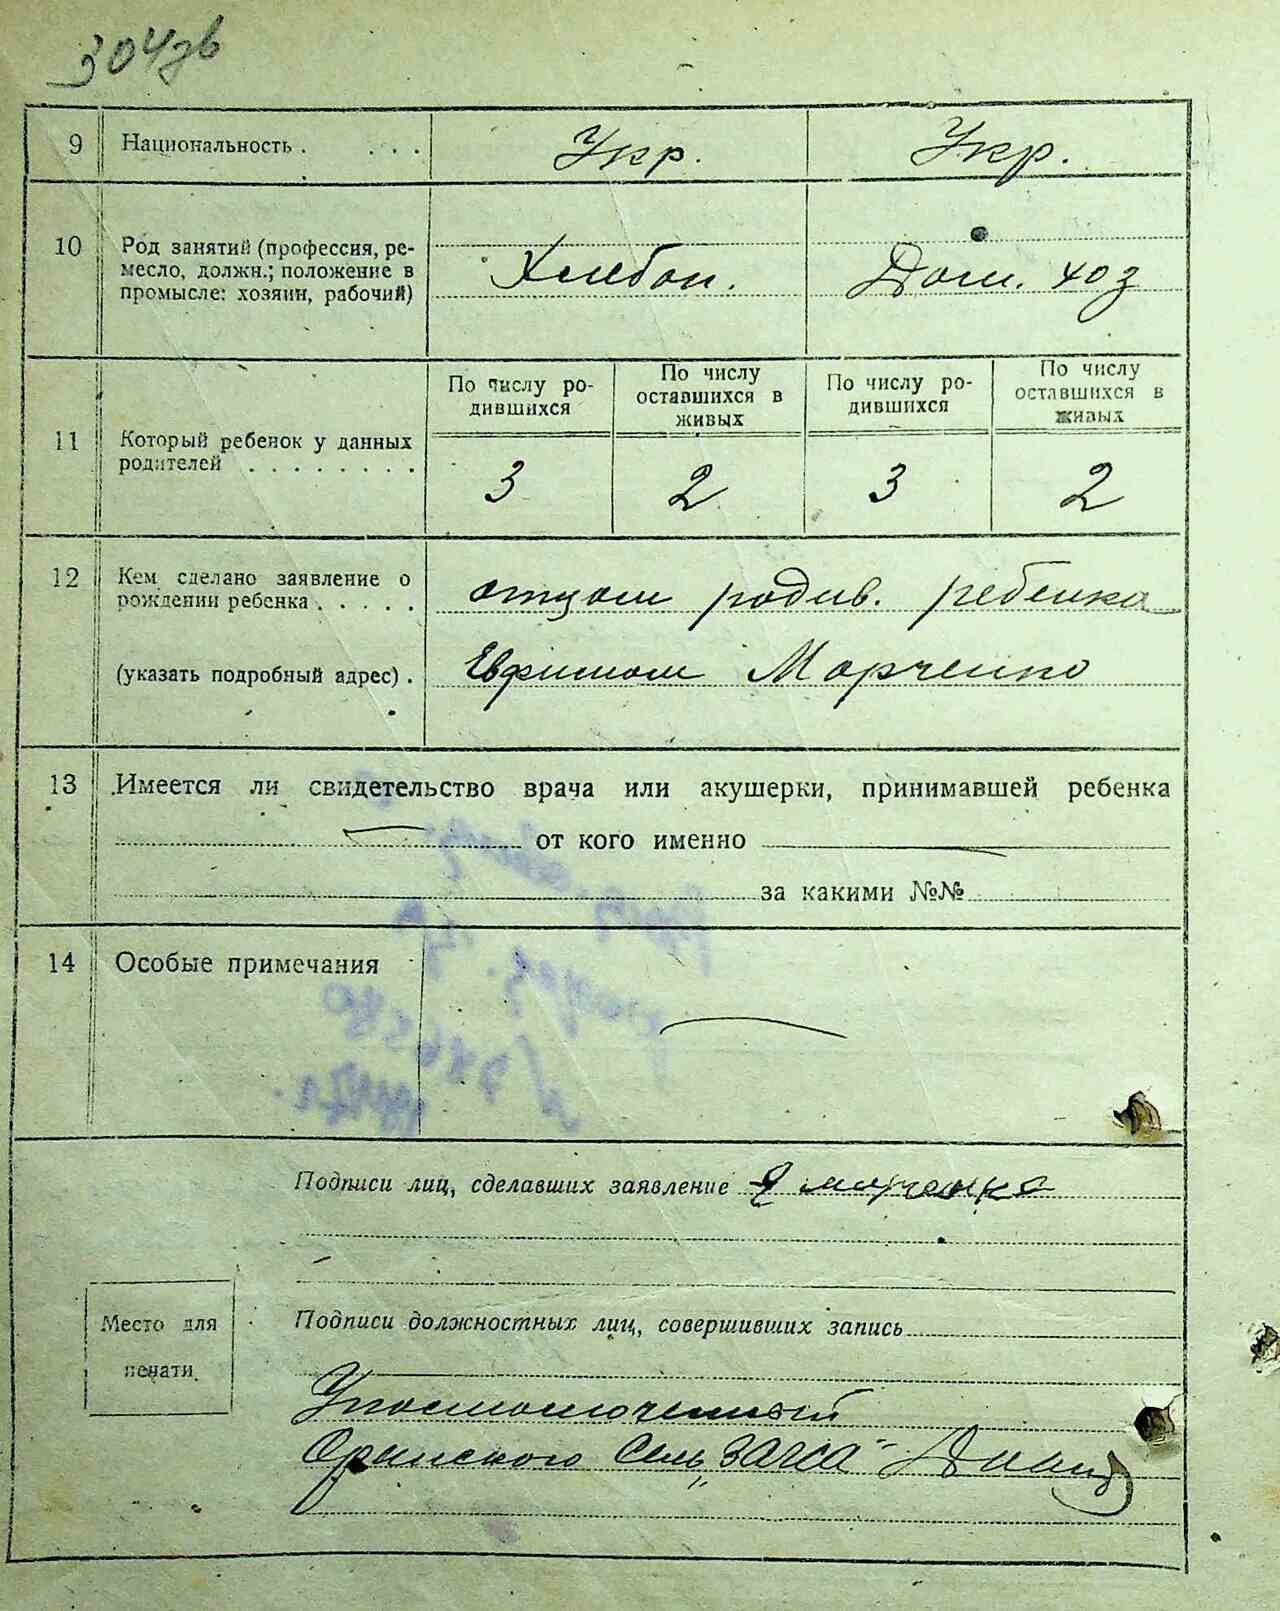 304зв
9 Национальность . . . . Укр. Укр.
10 Род занятий (профессия, ре-
месло, должн.; положение в
промысле: хозяин, рабочий)
Хлебоп. Дом. хоз
11 Который ребенок у данных
родителей . . . . . . . .
По числу ро-
дившихся
По числу
оставшихся в
живых
По числу ро-
дившихся
По числу
оставшихся в
живых
3 2 3 2
12 Кем сделано заявление о
рождении ребенка . . . . .
отцом родив. ребенка
(указать подробный адрес) .
Ефимом Марченко
13 Имеется ли свидетельство врача или акушерки, принимавшей ребенка
от кого именно
за какими №№
14 Особые примечания
Подписи лиц, сделавших заявление
Место для
печати.
Подписи должностных лиц, совершивших запись
Уполномоченный
Сель „ЗАГСА"